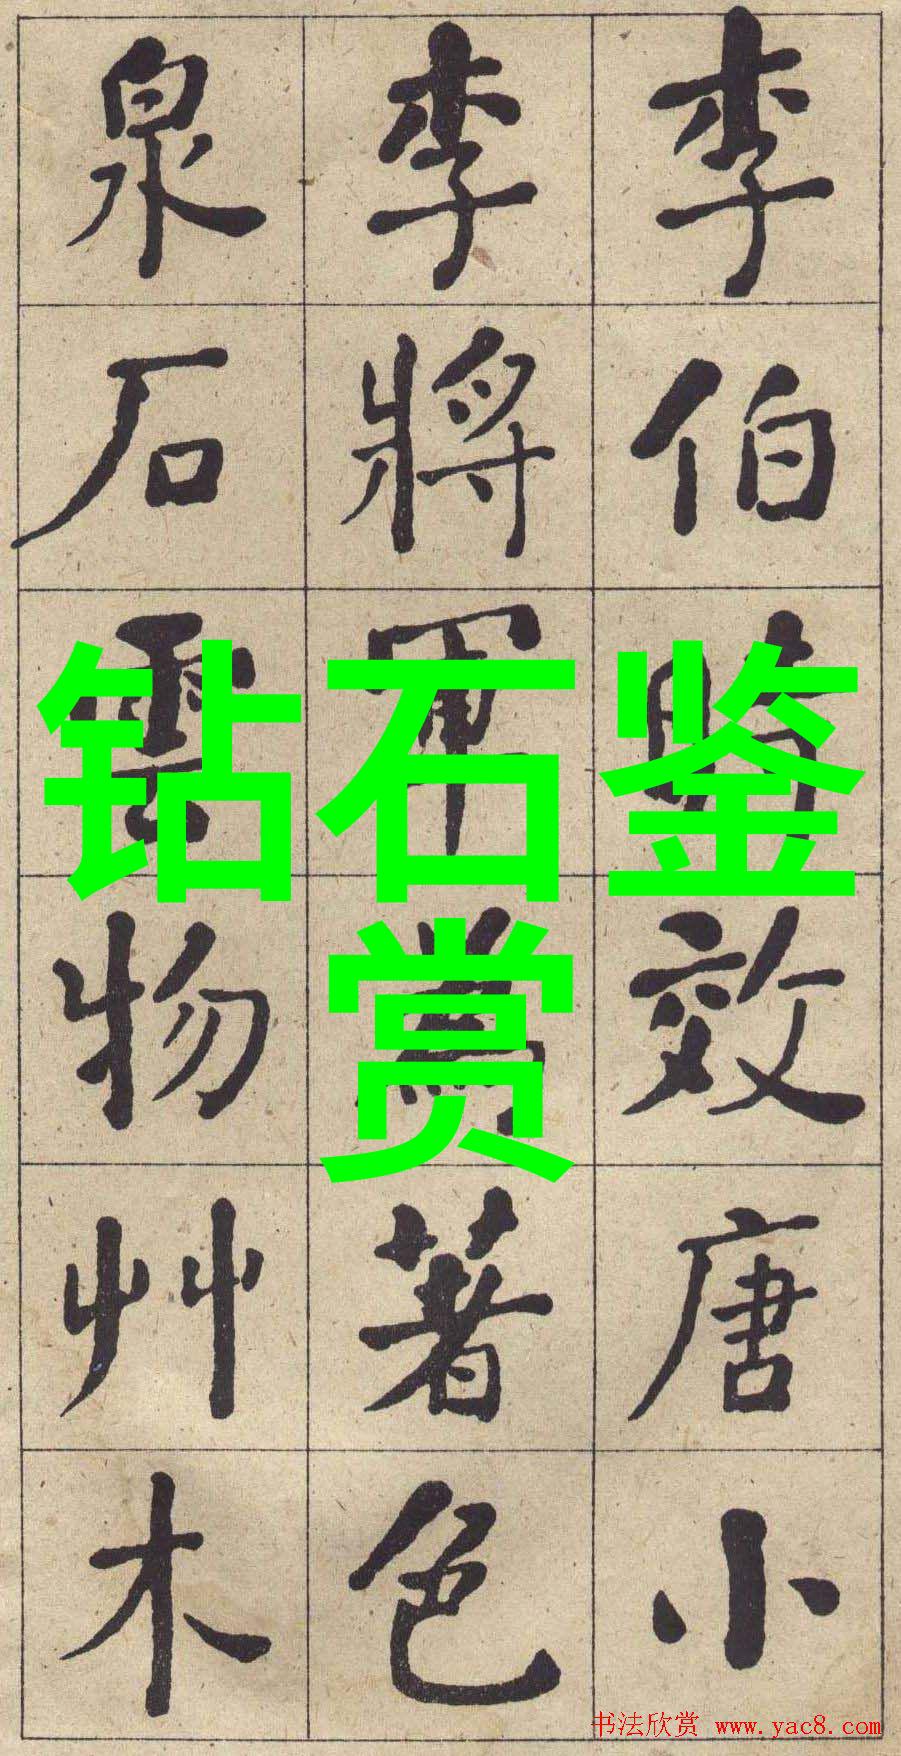 李伯時效唐小
李將軍為著色
泉石雲物艸木
钻石鉴
赏
书法欣赏 www.yac8.com